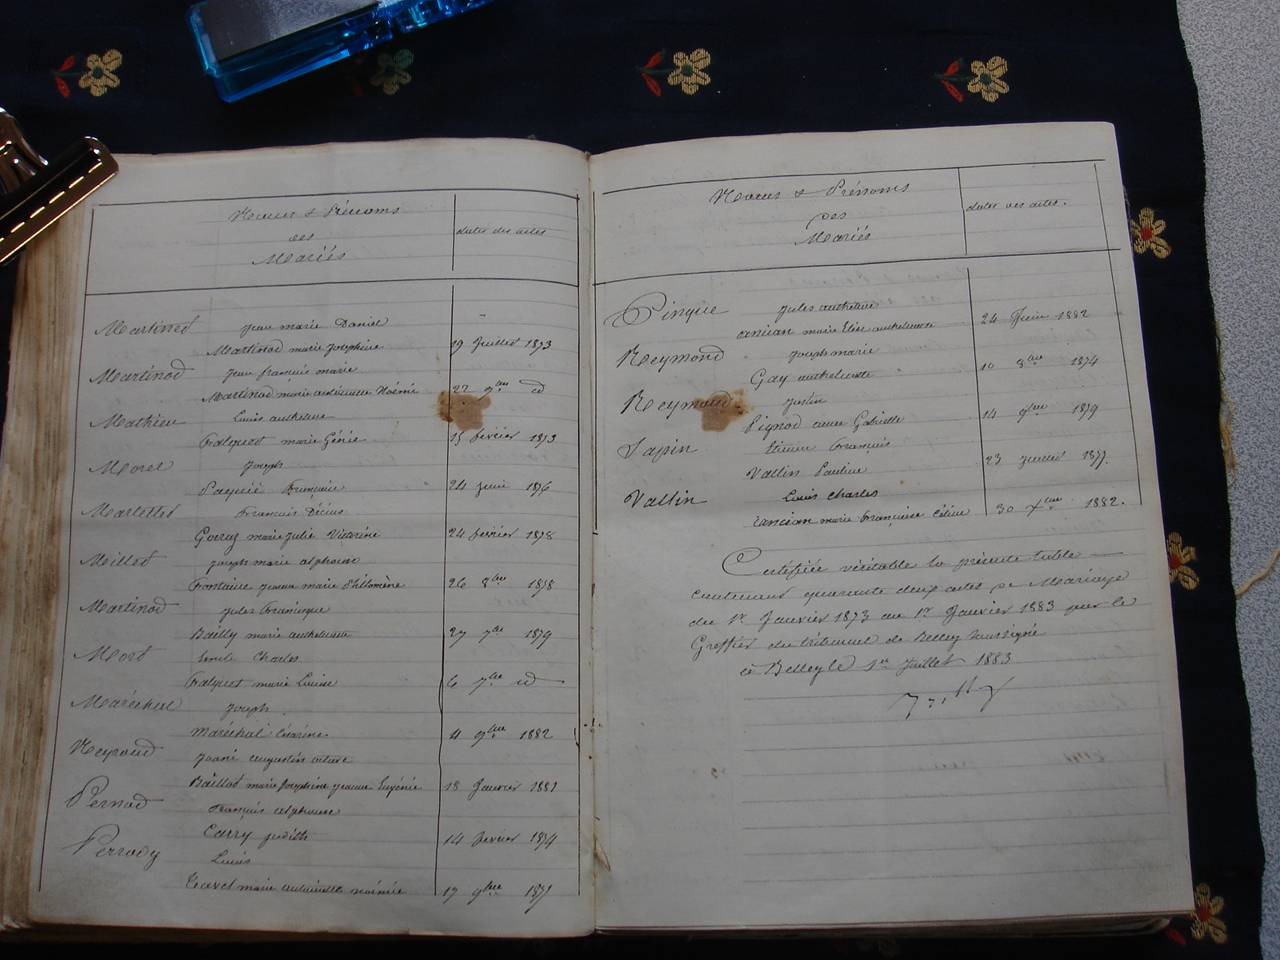 Noms & Prénoms
des
Mariés
dates des actes
Martinod Jean marie Daniel
Martinod marie Joséphine 29 Juillet 1873
Martinod Jean françois marie
Martinod marie antoinette Noémi 22 9bre id
Mathieu Louis anthelme
Falquet marie Génie 15 février 1873
Morel Joseph
Françoise 24 Juin 1876
François
marie Julie Victorine 24 février 1878
Millet Joseph marie alphonse
Fontaine Jeanne marie Philomène 26 8bre 1878
Martinod Jules Franisque
Bailly marie anthelmette 27 7bre 1879
Mort Emile Charles
Falquet marie Louise 6 7bre id
Maréchal Joseph
Maréchal Césarine 4 9bre 1882
Neyroud augustin octave
Baillot marie Joséphine Jeanne Eugénie 18 Janvier 1881
Pernod François alphonse
Carry Judith 14 février 1874
Perrody Louis
Tavel marie antoinette noémie 17 9bre 1877
Noms & Prénoms
des
Mariés
dates des actes.
Pingue Jules anthelme
Ancian marie Elise anthelmette 24 Juin 1882
Reymond Joseph marie
Gay anthelmette 10 8bre 1874
Reymond Justin
Pignod anne Gabrielle 14 9bre 1879
Tapin Etienne François
Vallin Pauline 23 Juillet 1877.
Vallin Louis Charles
Ancian marie Françoise Céline 30 Xbre 1882.
Certifiée véritable la présente table
contenant quarante deux actes de Mariage
du 1er Janvier 1873 au 1er Janvier 1883 par le
Greffier du tribunal de Belley soussigné
à Belley le 1er Juillet 1883